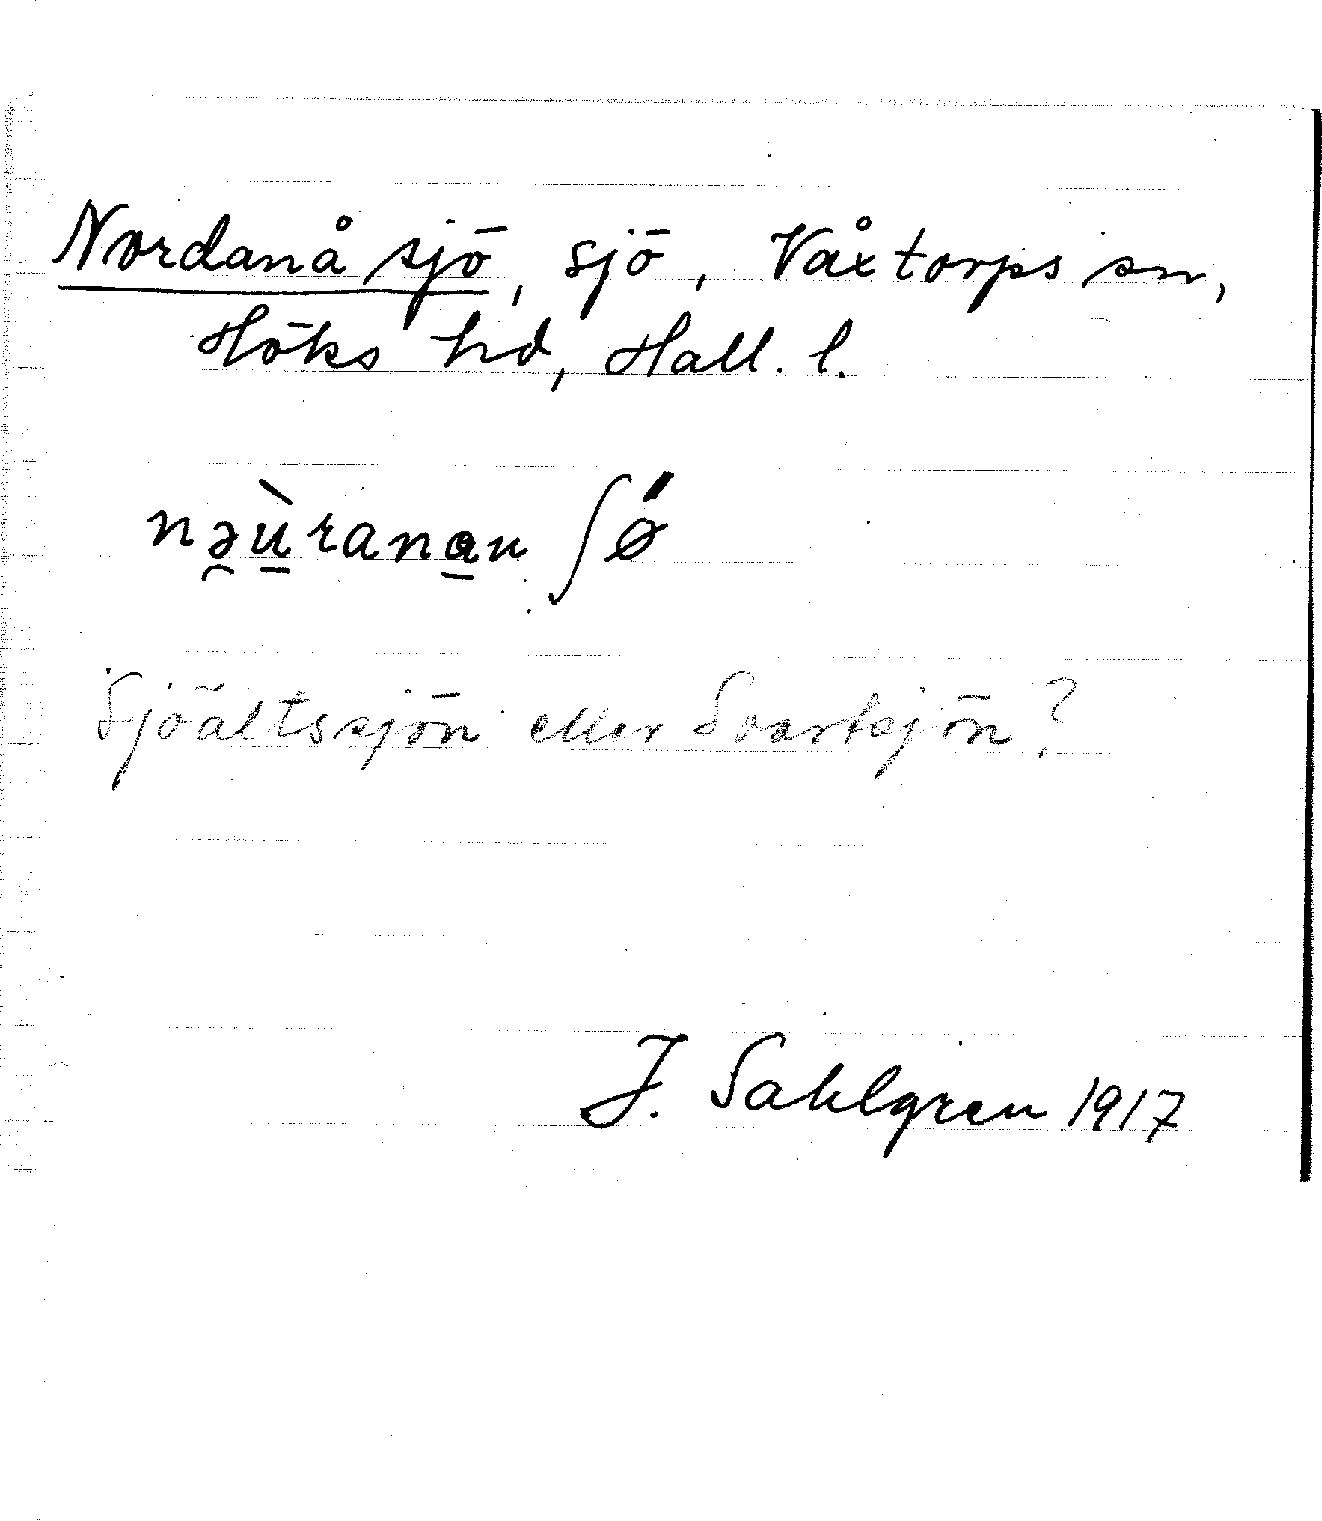 Nordanå sjö, sjö, Våxtorps sn,
Höks hd, Hall. l.
nə̯ù̱rana̱u ʃǿ
Sjöältssjön eller Svartsjön?
J. Sahlgren 1917